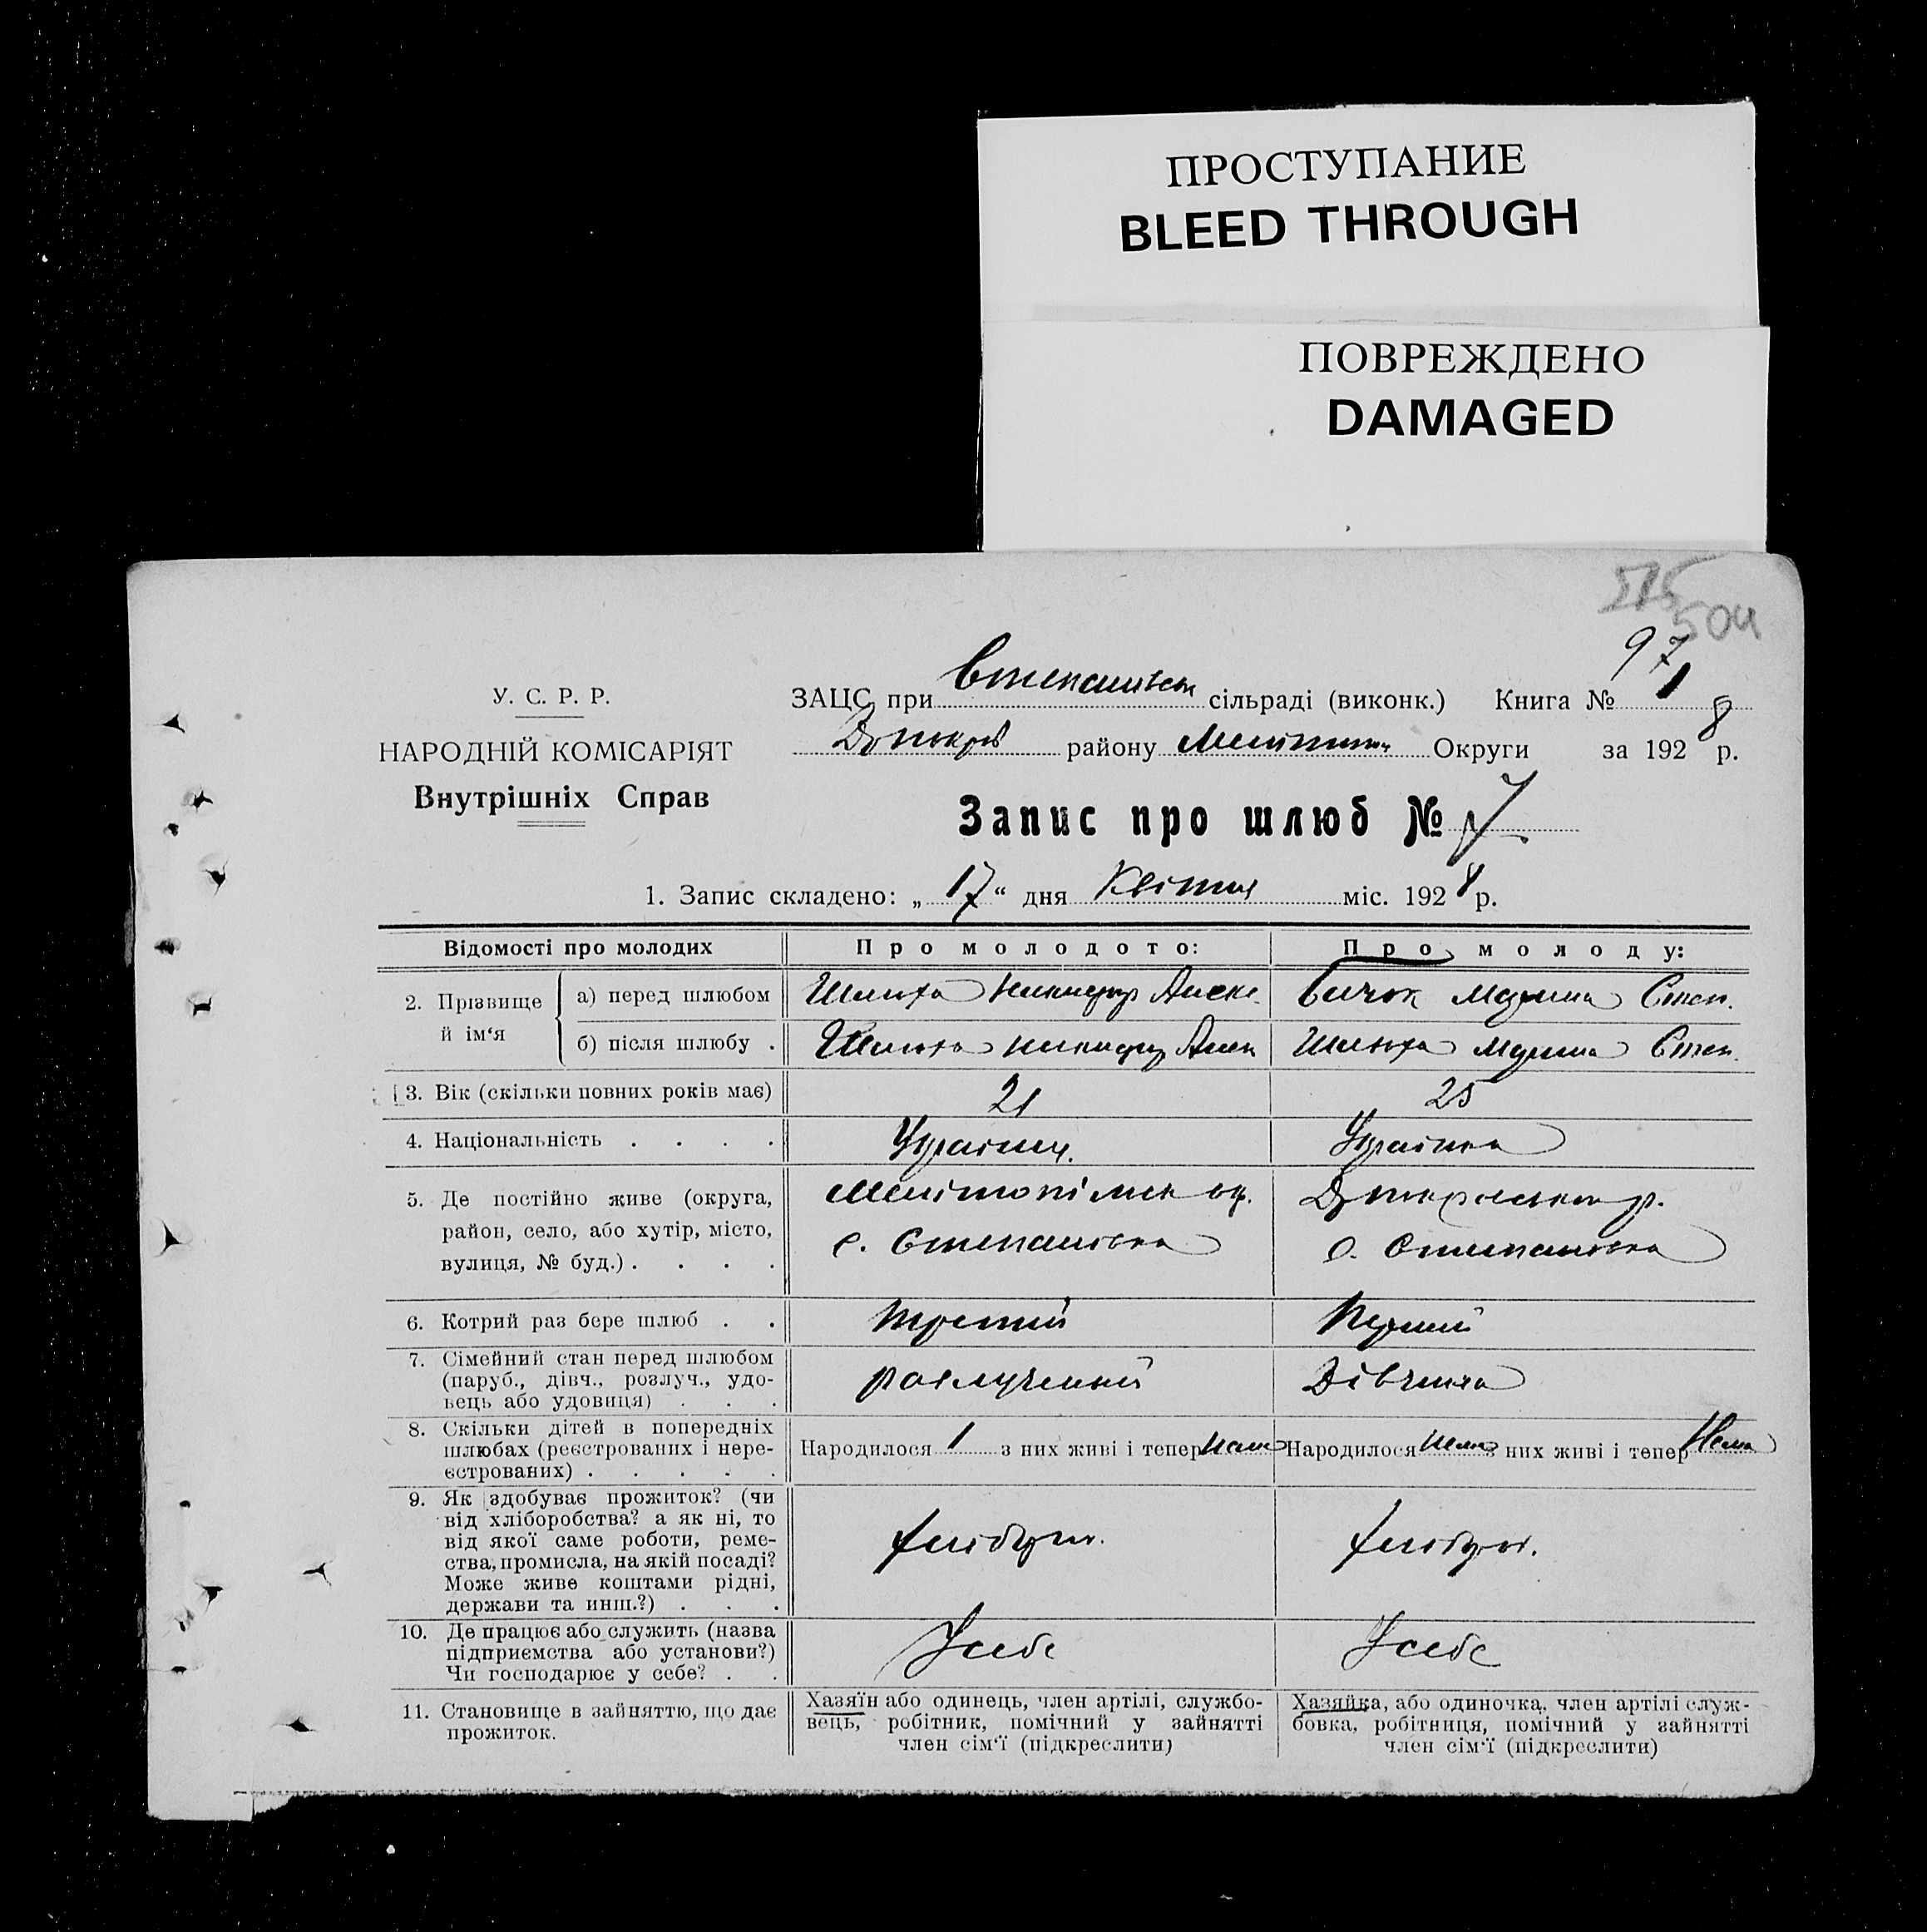 ПРОСТУПАНИЕ
BLEED THROUGH
ПОВРЕЖДЕНО
DAMAGED
504
97
У. С. Р. Р.
НАРОДНІЙ КОМІСАРІЯТ
Внутрішніх Справ
ЗАЦС при сільраді (виконк.) Книга № 1
району Округи за 1928 р.
Запис про шлюб № 7
1. Запис складено: „17“ дня Квітня міс. 1928 р.
Відомості про молодих Про молодого: Про молоду:
2. Прізвище й ім‘я
а) перед шлюбом Шлюха Никифор Алекс. Бичок Марина Степ.
б) після шлюбу . Шлюха Никифор Алек Шлюха Марина Степ.
3. Вік (скільки повних років має) 21 25
4. Національність . . . . Україн. Українка
5. Де постійно живе (округа,
район, село, або хутір, місто,
вулиця, № буд.) . . . .
Мелітопільск ок.
с. Степанівка
р.
с. Степанівка
6. Котрий раз бере шлюб . . третий Перший
7. Сімейний стан перед шлюбом
(паруб., дівч., розлуч., удо-
вець або удовиця) . . .
розлучений Дівчина
8. Скільки дітей в попередніх
шлюбах (реєстрованих і нере-
єстрованих) . . . . .
Народилося 1 з них живі і тепер нема Народилося нема з них живі і тепер Нема
9. Як здобуває прожиток? (чи
від хліборобства? а як ні, то
від якої саме роботи, реме-
ства, промисла, на якій посаді?
Може живе коштами рідні,
держави та инш.?) . . .
хлібороб. хлібороб.
10. Де працює або служить (назва
підприємства або установи?)
Чи господарює у себе? . .
У себе У себе
11. Становище в зайняттю, що дає
прожиток.
Хазяїн або одинець, член артілі, службо-
вець, робітник, помічний у зайнятті
член сім‘ї (підкреслити)
Хазяйка, або одиночка, член артілі служ-
бовка, робітниця, помічний у зайнятті
член сім‘ї (підкреслити)